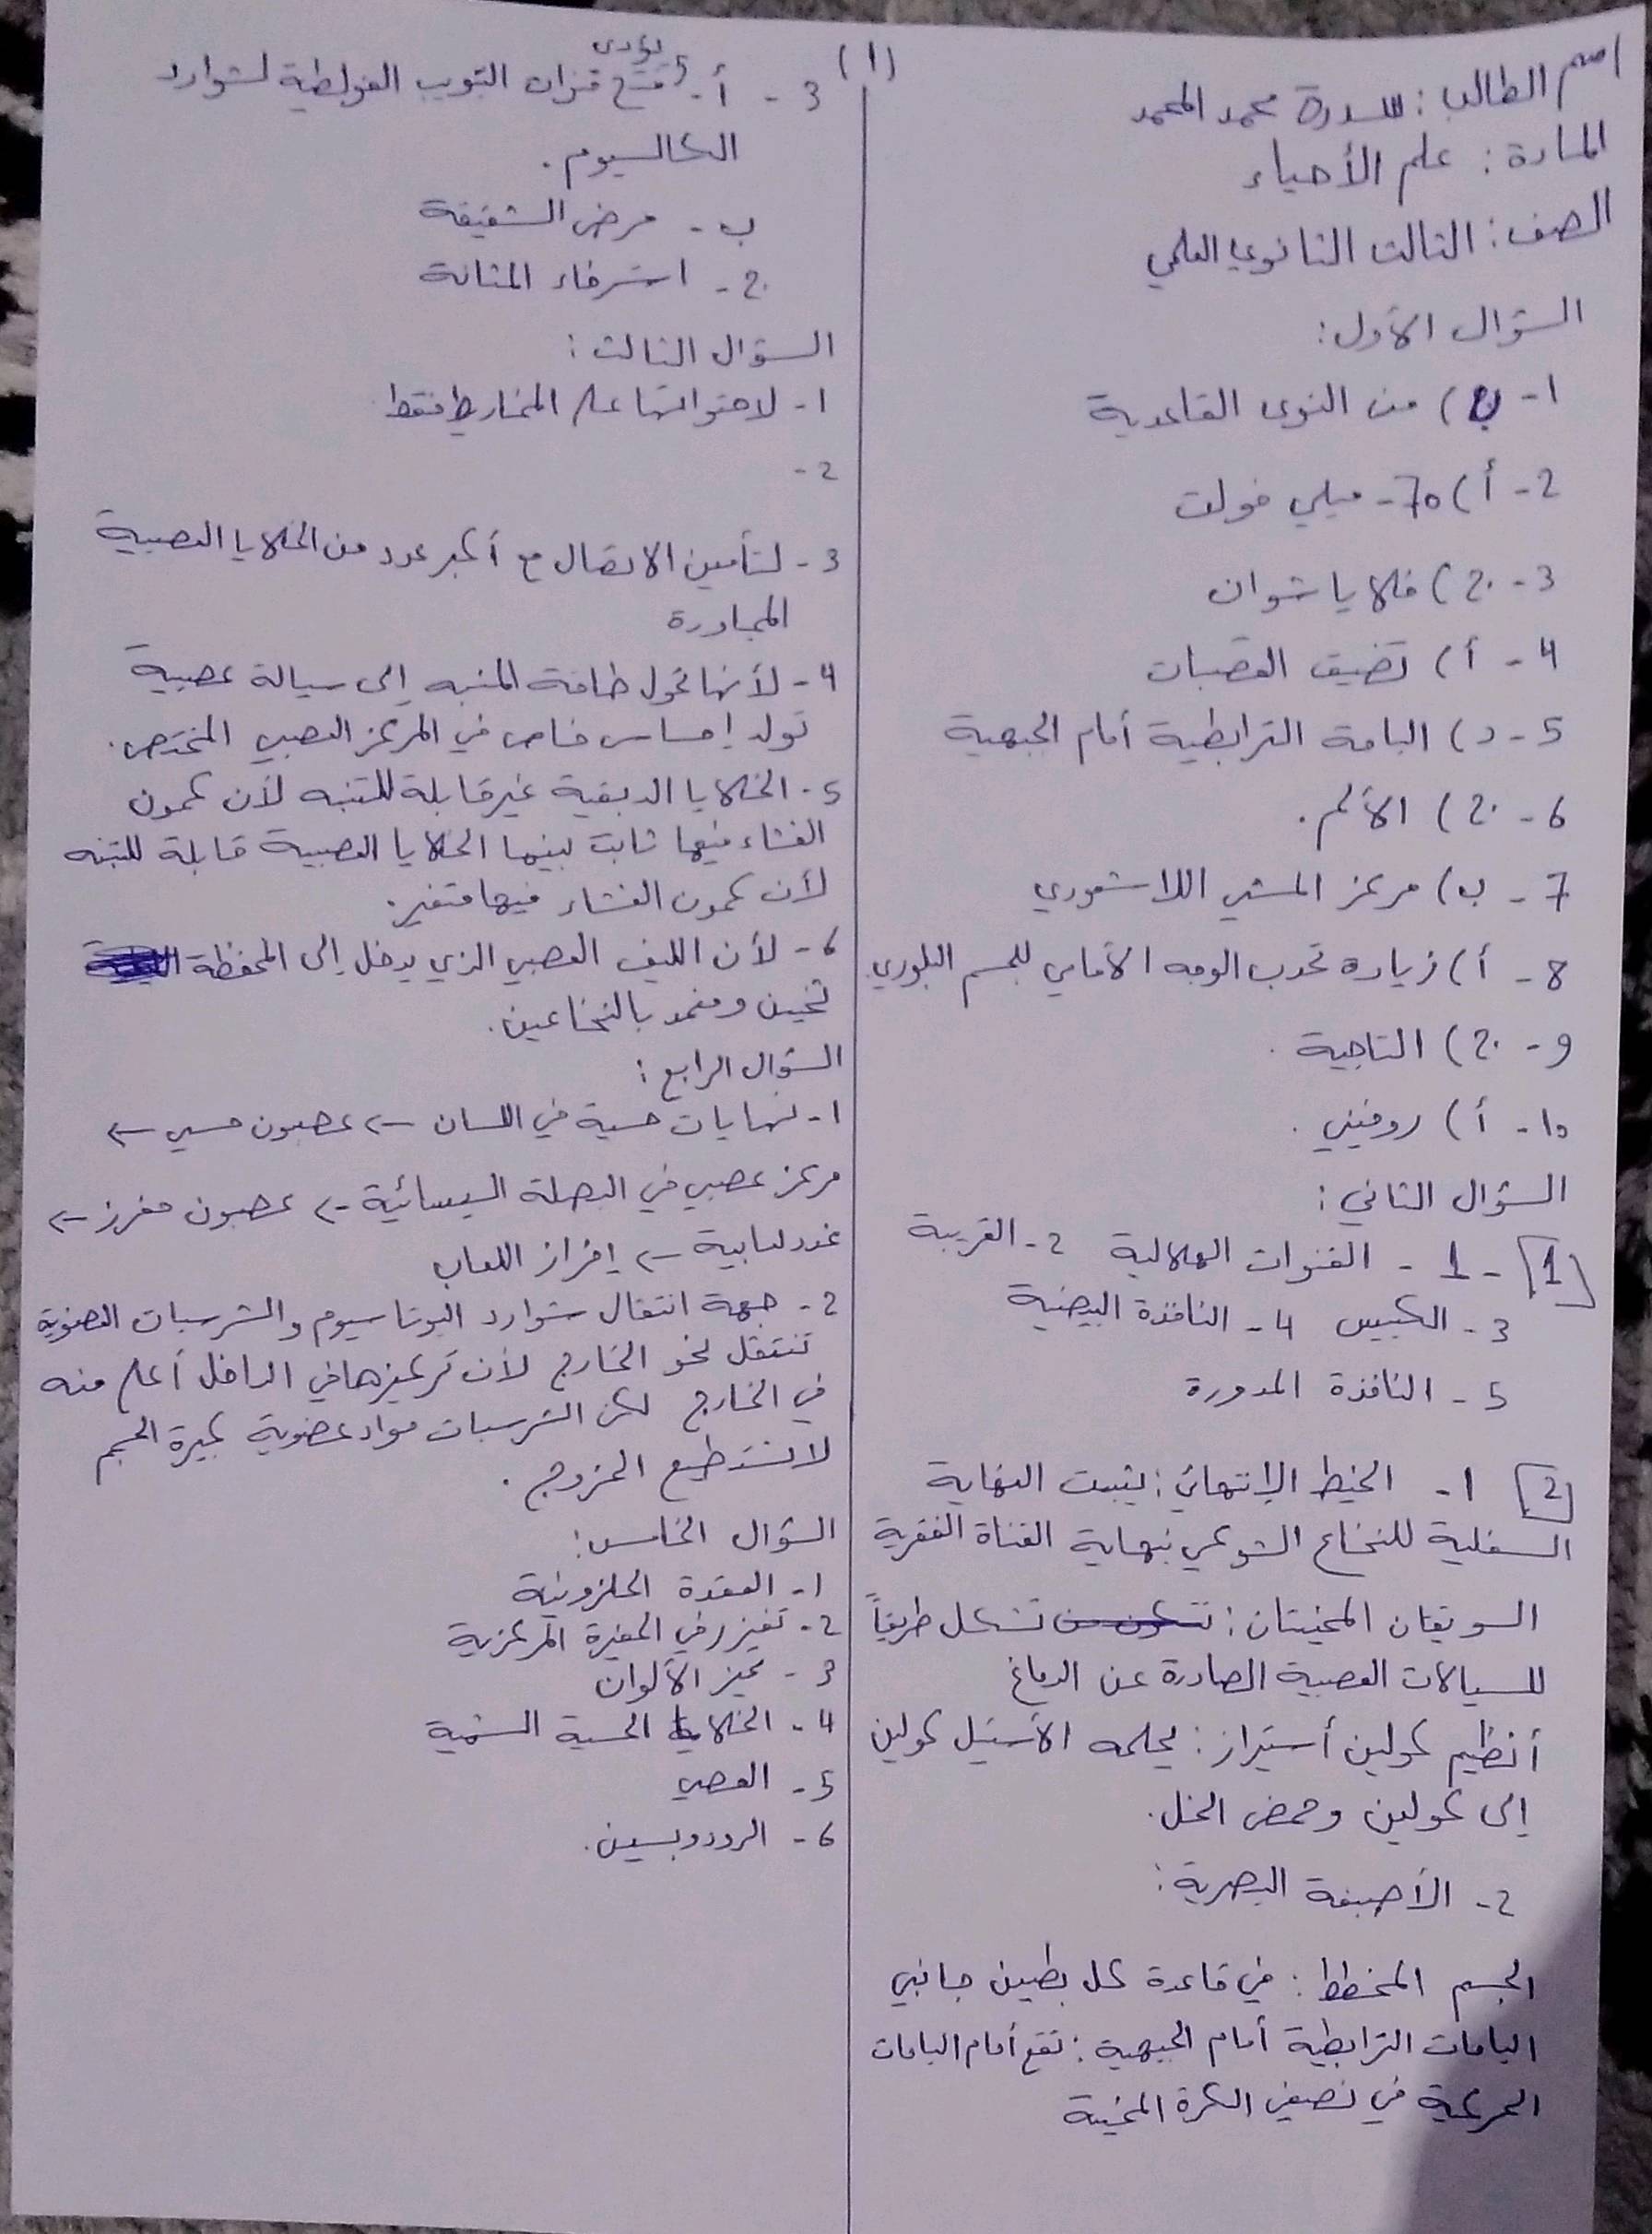 (1)
اسم الطالب: سدرة محمد المحمد
المادة: علم الأحياء
الصف: الثالث الثانوي العلمي
السؤال الأول:
1- ب) من النوى القاعدية
2- أ) 70- ميلي فولت
3- ج) خلايا شوان
4- أ) تضيق القصبات
5- د) الباحة الترابطية أمام الجبهية
6- ج) الألم.
7- ب) مركز المشي اللاشعوري
8- أ) زيادة تحدب الوجه الأمامي للجسم البلوري.
9- ج) التاجية.
10- أ) روفيني.
السؤال الثاني:
[1]- 1- القنوات الهلالية 2- القريبة
3- الكييس 4- النافذة البيضية
5- النافذة المدورة
[2] 1- الخيط الإنتهائي: يثبت النهاية
السفلية للنخاع الشوكي بنهاية القناة الفقرية
السويقتان المخيتان: تشكل طريقاً
للسيالات العصبية الصادرة عن الدماغ
أنظيم كولين أستيراز: يحلمه الأستيل كولين
إلى كولين وحمض الخل.
2- الأصبغة البصرية:
الجسم المخطط: في قاعدة كل بطين جانبي
الباحات الترابطية أمام الجبهية: تقع أمام الباحات
الحركية في نصفي الكرة المخية
3- أ- يؤدي فتح قنوات التبويب الفولطية لشوارد
الكالسيوم.
ب- مرض الشقيقة
ج- استرخاء المثانة
السؤال الثالث:
1- لاحتوائها على المخاريط فقط.
2-
3- لتأمين الاتصال مع أكبر عدد من الخلايا العصبية
المجاورة
4- لأنها تحول طاقة المنبه إلى سيالة عصبية
تولد إحساس خاص في المركز العصبي المختص.
5- الخلايا الدبقية غير قابلة للتنبه لأن كمون
الغشاء فيها ثابت بينما الخلايا العصبية قابلة للتنبه
لأن كمون الغشاء فيها متغير.
6- لأن الليف العصبي الذي يدخل إلى المحفظة
ثخين ومغمد بالنخاعين.
السؤال الرابع:
1- نهايات حسية في اللسان ← عصبون حسي ←
مركز عصبي في البصلة السيسائية ← عصبون مفرز ←
غدد لعابية ← إفراز اللعاب
2- جهة انتقال شوارد البوتاسيوم والشرسبات العضوية
تنتقل نحو الخارج لأن تركيزها في الداخل أعلى منه
في الخارج لكن الشرسبات مواد عضوية كبيرة الحجم
لا تستطيع الخروج.
السؤال الخامس:
1- العقدة الحلزونية
2- تغزر في الحفيرة المركزية
3- تميز الألوان
4- الخلايا الحسية الشمية
5- العصي
6- الرودوبسين.